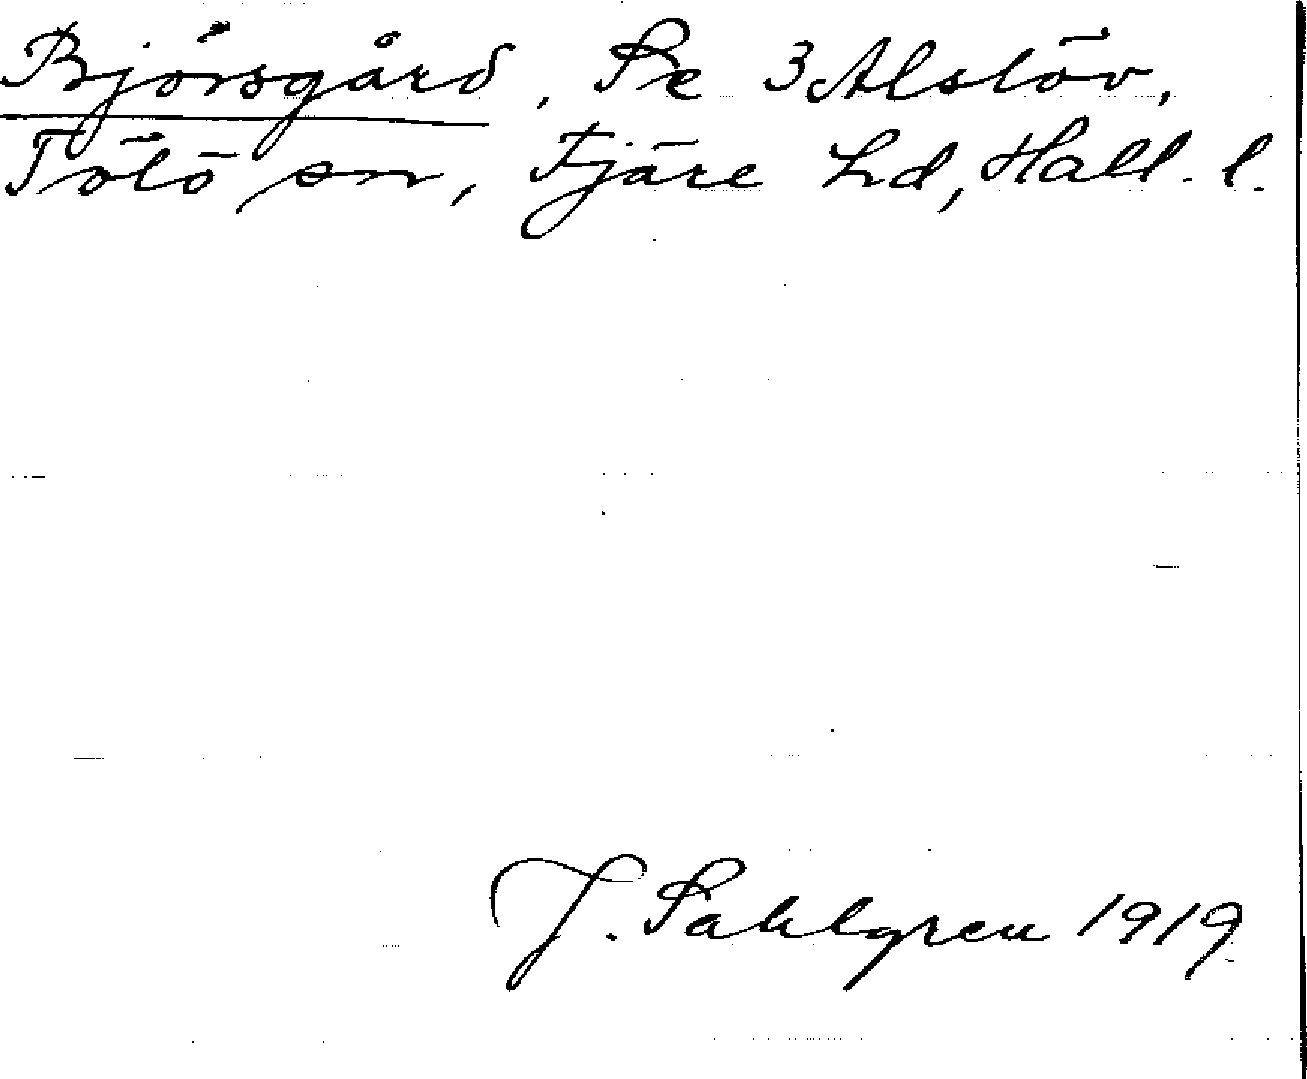 Björsgård, Se 3 Alslöv,
Tölö sn, Fjäre hd, Hall. l.
J. Sahlgren 1919